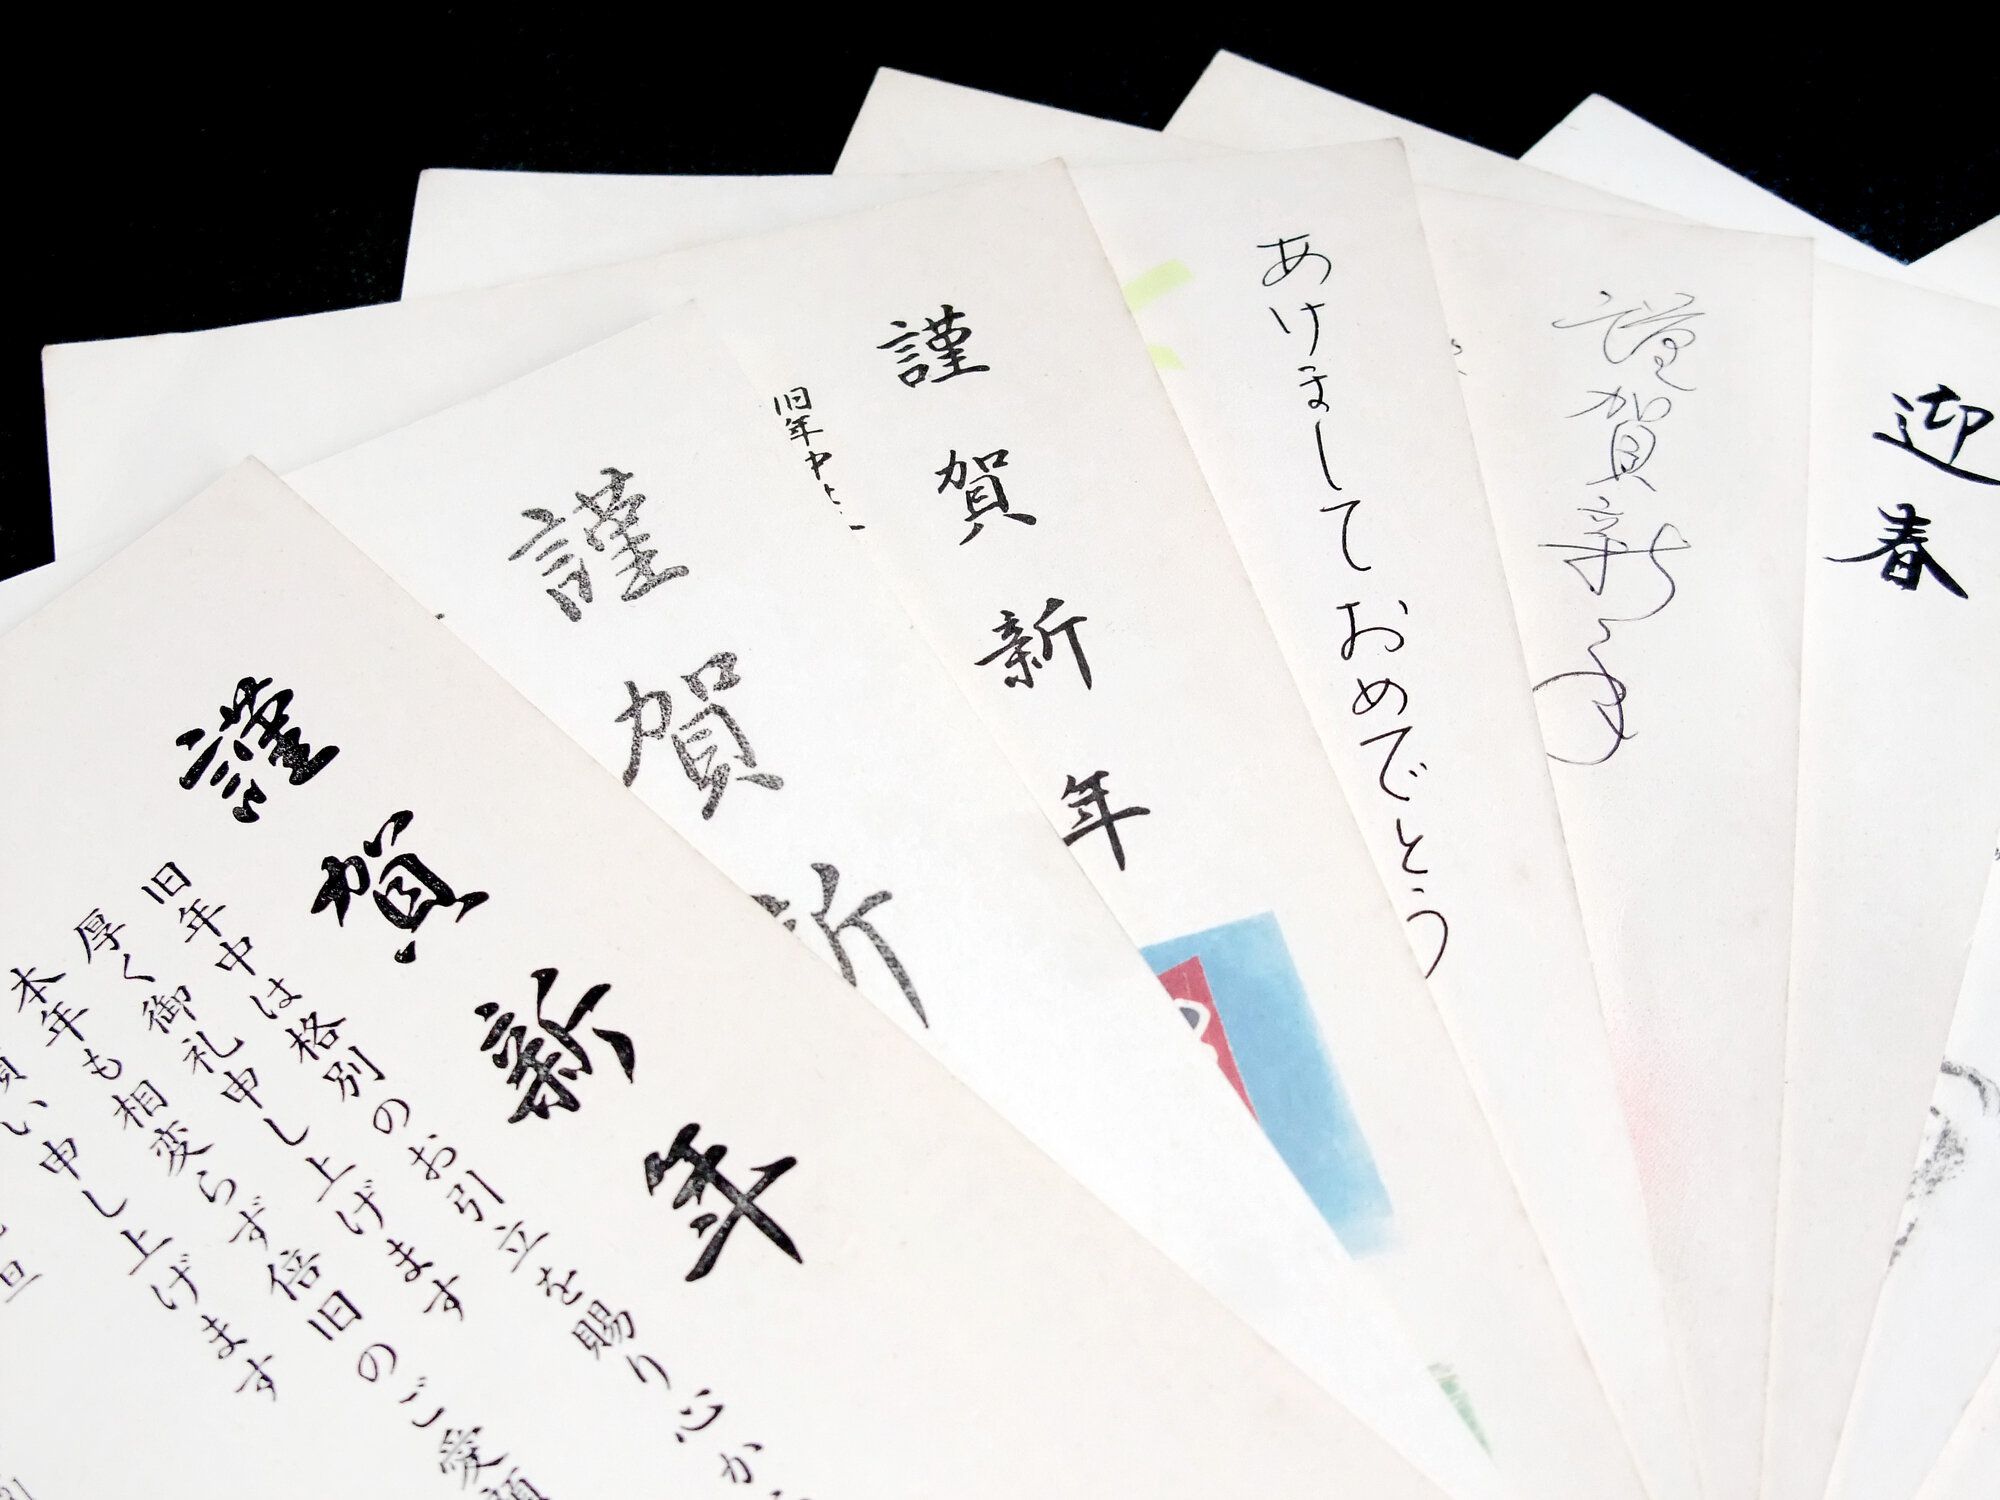 謹賀新年
旧年中は格別のお引立を賜り心か
厚く御礼申し上げます
本年も相変らず倍旧のご愛顧
願い申し上げます
旦
謹賀新
謹賀新年
旧年中は
あけましておめでとう
謹賀新年
迎春